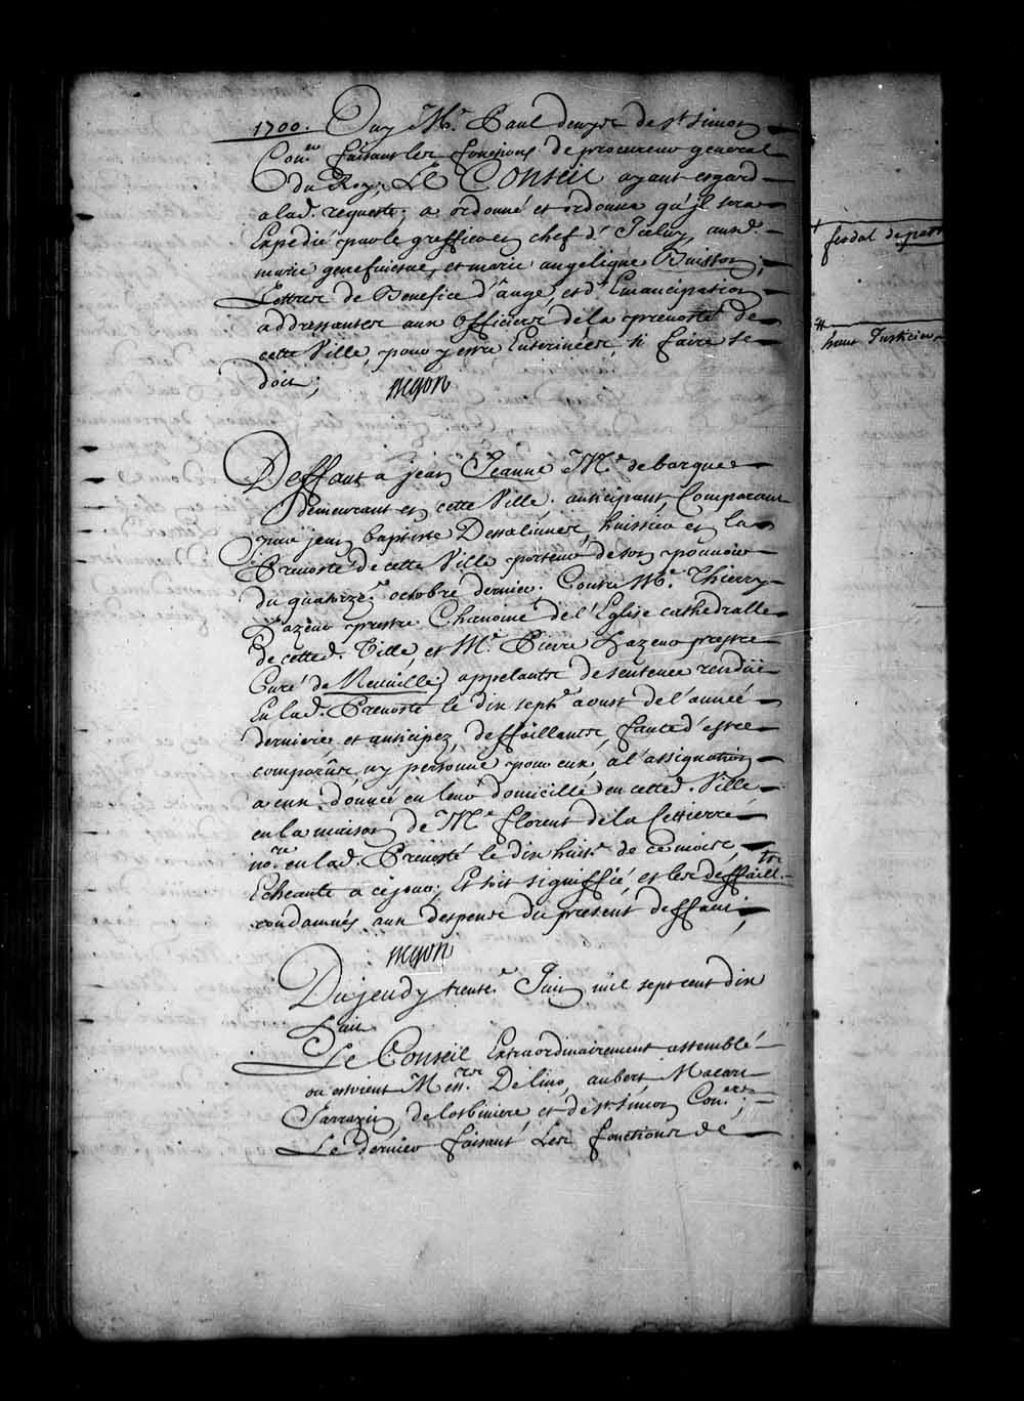 1700. Ouy Me. Paul denys de st Simon
Coner. faisant les fonctions de procureur general
du Roy; LE CONSEIL ayant esgard
a lad. requeste; a ordonné et ordonne qu'jl sera
Expedié par le greffier en chef d'Iceluy, auxd.
marie genefuiesue, et marie angelique Buisson;
Lettres de Benefice d'ange, et d'Emancipation
addressantes aux Officiers de la preuosté de
cette Ville, pour y estre Enterinées si faire se
doit;
Begon
Deffaut a jean Jeanne Me. de barques
demeurant en cette Ville, anticipant, Comparant
par jean baptiste huissier en la
Preuosté de cette Ville porteur de son pouuoir
du quatorze. octobre dernier. Contre Me. Thierry
hazeur prestre Chanoine de l'Eglise cathedralle
de cetted. Ville, et Me. Pierre hazeur prestre
Curé de appelants de sentence rendüe
En lad. Preuosté le dix sept. aoust de l'année
derniere et anticipez, deffaillants, faute d'estre
comparus, ny personne pour eux, a l'assignation
a eux donnée en leur domicille en cetted. Ville
en la maison de Me. florent de la Cettierre
nore. en lad. Preuosté le dix huit. de ce mois,
Echeante a ce jour; Et soit signiffié, et les deffaillts.
condamnés aux despens du present deffaut;
Begon
Du jeudy trente. Juin mil sept cent dix
huit
Le Conseil Extraordinairement assemblé
ou estoient Messrs. Delino, aubert, Macart
Sarrazin, de lotbiniere, et de st. simon Coners.;
Le dernier faisant Les fonctions de
feodal de
haut Justicier